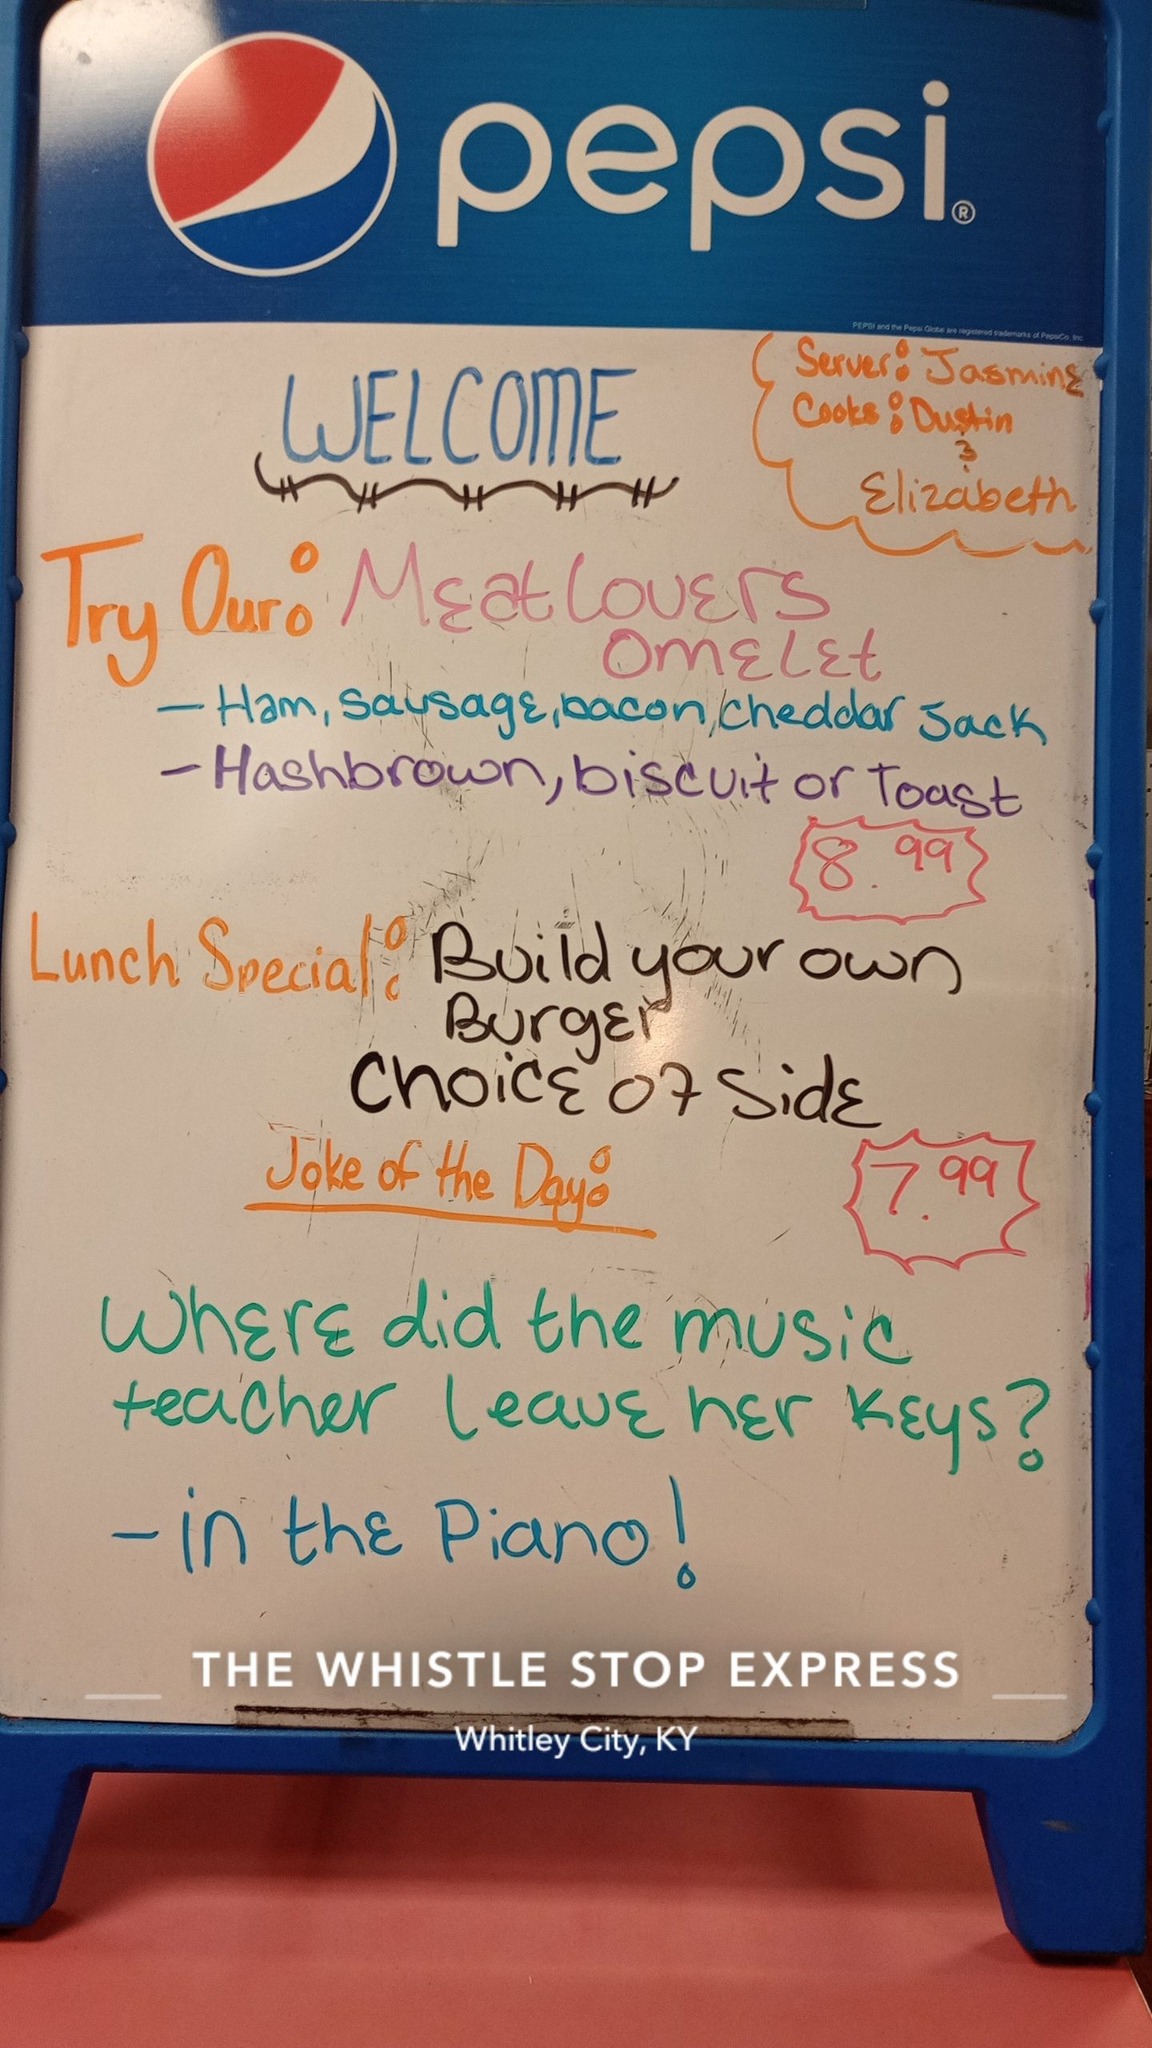 pepsi®
PEPSI and the Pepsi Globe are registered trademarks of PepsiCo, Inc.
WELCOME
Server: Jasmine
Cooks: Dustin
&
Elizabeth
Try Our: Meat lovers
omelet
- Ham, sausage, bacon, cheddar Jack
- Hashbrown, biscuit or Toast
8.99
Lunch Special: Build your own
Burger
Choice of Side
7.99
Joke of the Day:
Where did the music
teacher leave her keys?
- in the Piano!
THE WHISTLE STOP EXPRESS
Whitley City, KY